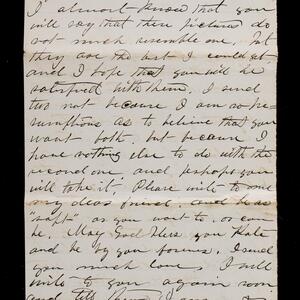 I almost know that you
will say that these pictures do
not much resemble me. But
they are the best I could get,
and I hope that you will be
satisfied with them. I send
two not because I am so pre-
sumptious as to believe that you
want both, but because I
have nothing else to do with the
second one, and perhaps you
will take it. Please write to me
my dear and be as
"saft" as you want to, or can
be. May God bless you Kate
and be by you forever. I send
you much love, I will
write to you again soon
and tell